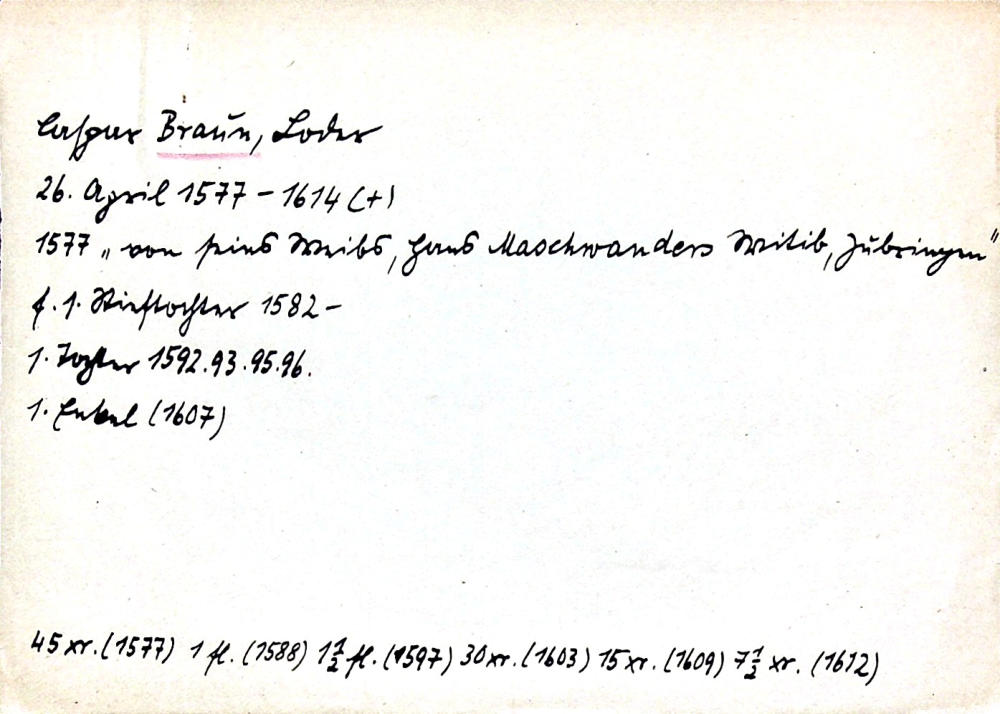 Caspar Braun, Loder
26. April 1577 – 1614 (+)
1577 „von seins Weibs, Hans Maschwanders Witib, Zubringen"
f. 1. Stieftochter 1582 –
1. Tochter 1592.93.95.96.
1. Enkel (1607)
45 xr. (1577) 1 fl. (1588) 1½ fl. (1597) 30 xr. (1603) 15 xr. (1609) 7½ xr. (1612)